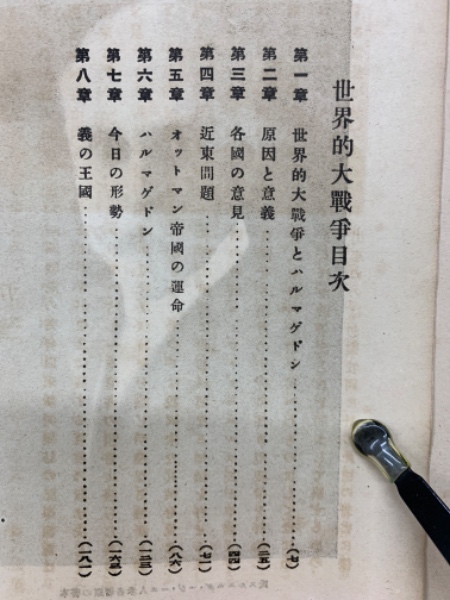 世界的大戰爭目次
第一章 世界的大戰爭とハルマゲドン……………(七)
第二章 原因と意義……………(二五)
第三章 各國の意見……………(四四)
第四章 近東問題……………(七一)
第五章 オットマン帝國の運命……………(八六)
第六章 ハルマゲドン……………(一二三)
第七章 今日の形勢……………(一六三)
第八章 義の王國……………(一八一)